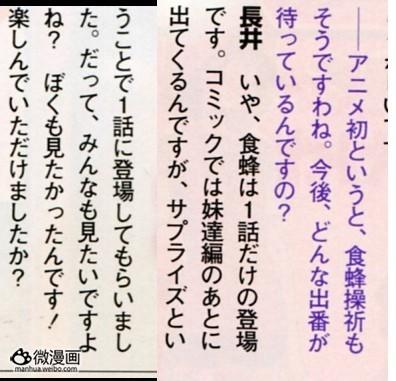 ――アニメ初というと、食蜂操祈も
そうですわね。今後、どんな出番が
待っているんですの?
長井　いや、食蜂は1話だけの登場
です。コミックでは妹達編のあとに
出てくるんですが、サプライズとい
うことで1話に登場してもらいまし
た。だって、みんなも見たいですよ
ね?　ぼくも見たかったんです!
楽しんでいただけましたか?
微漫画
manhua.weibo.com